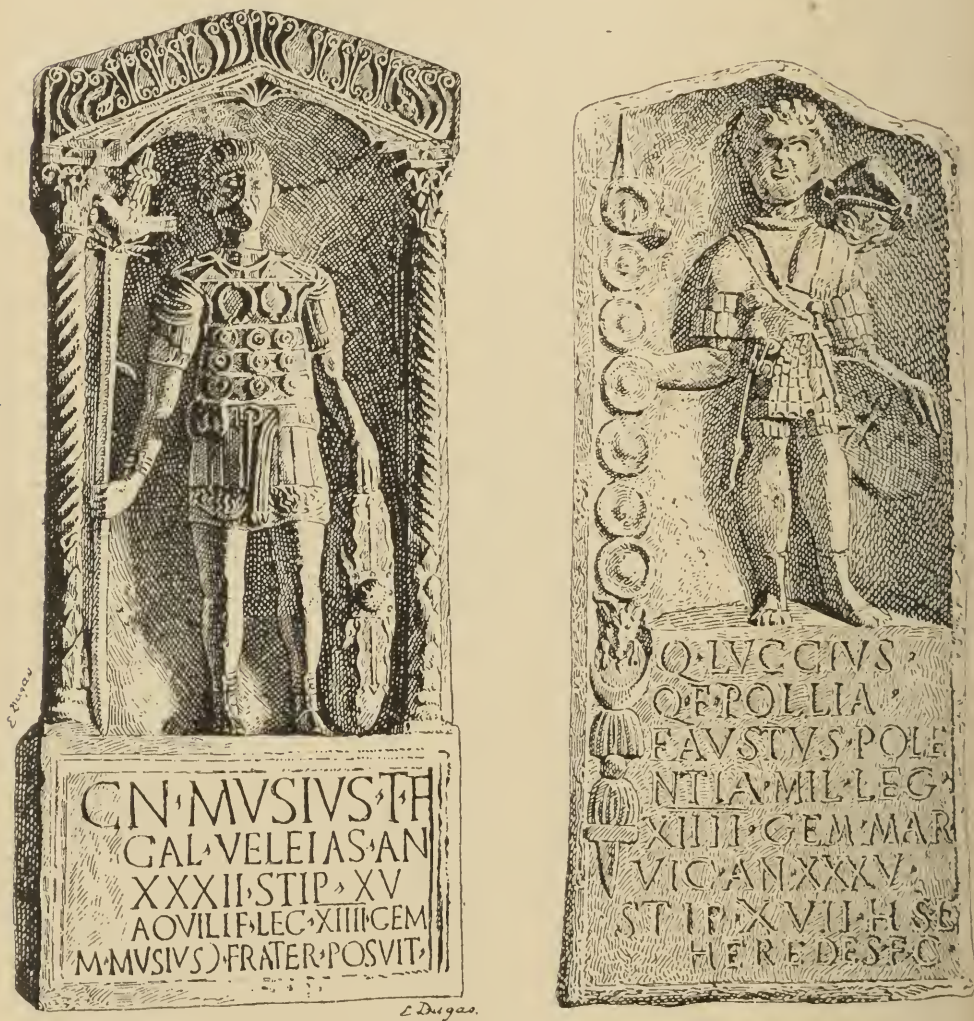 CN·MVSIVS·T·F
GAL·VELEIAS·AN
XXXII·STIP·XV
AQVILIF·LEG·XIIII·GEM
M·MVSIVS Ɔ·FRATER·POSVIT·
E Dugas
E Dugas.
Q·LVCCIVS·
Q·F·POLLIA·
FAVSTVS·POLE
NTIA·MIL·LEG·
XIIII·GEM·MAR
VIC·AN·XXXV·
STIP·XVII·H·S·E
HEREDES·F·C·